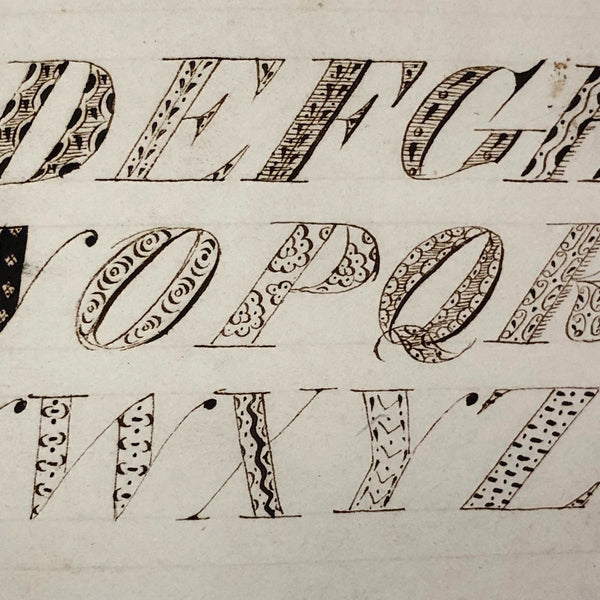 DEFG
OPQR
WXYZ